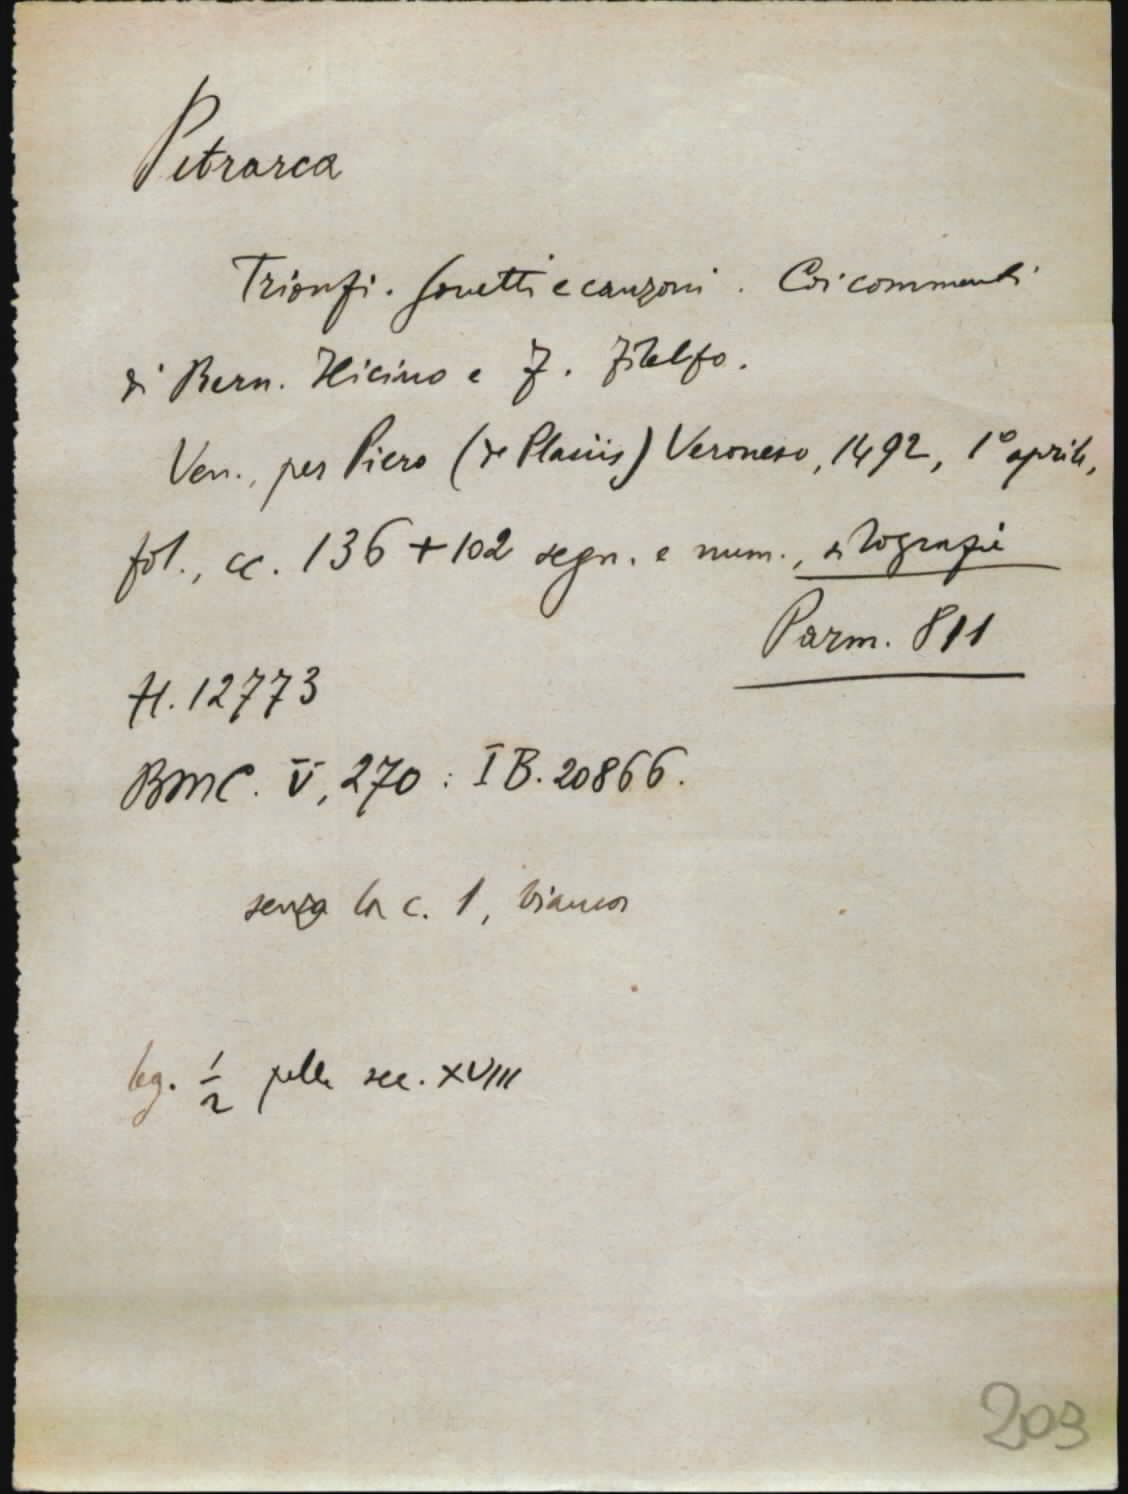 Petrarca
Trionfi. Sonetti e canzoni. Coi commenti
di Bern. Ilicino e F. Filelfo.
Ven., per Piero (de Plasiis) Veronese, 1492, 1° aprile,
fol., cc. 136 + 102 segn. e num., silografie
Parm. 811
H. 12773
BMC. V, 270 : IB. 20866.
senza la c. 1, bianca
leg. 1/2 pelle sec. XVIII
203